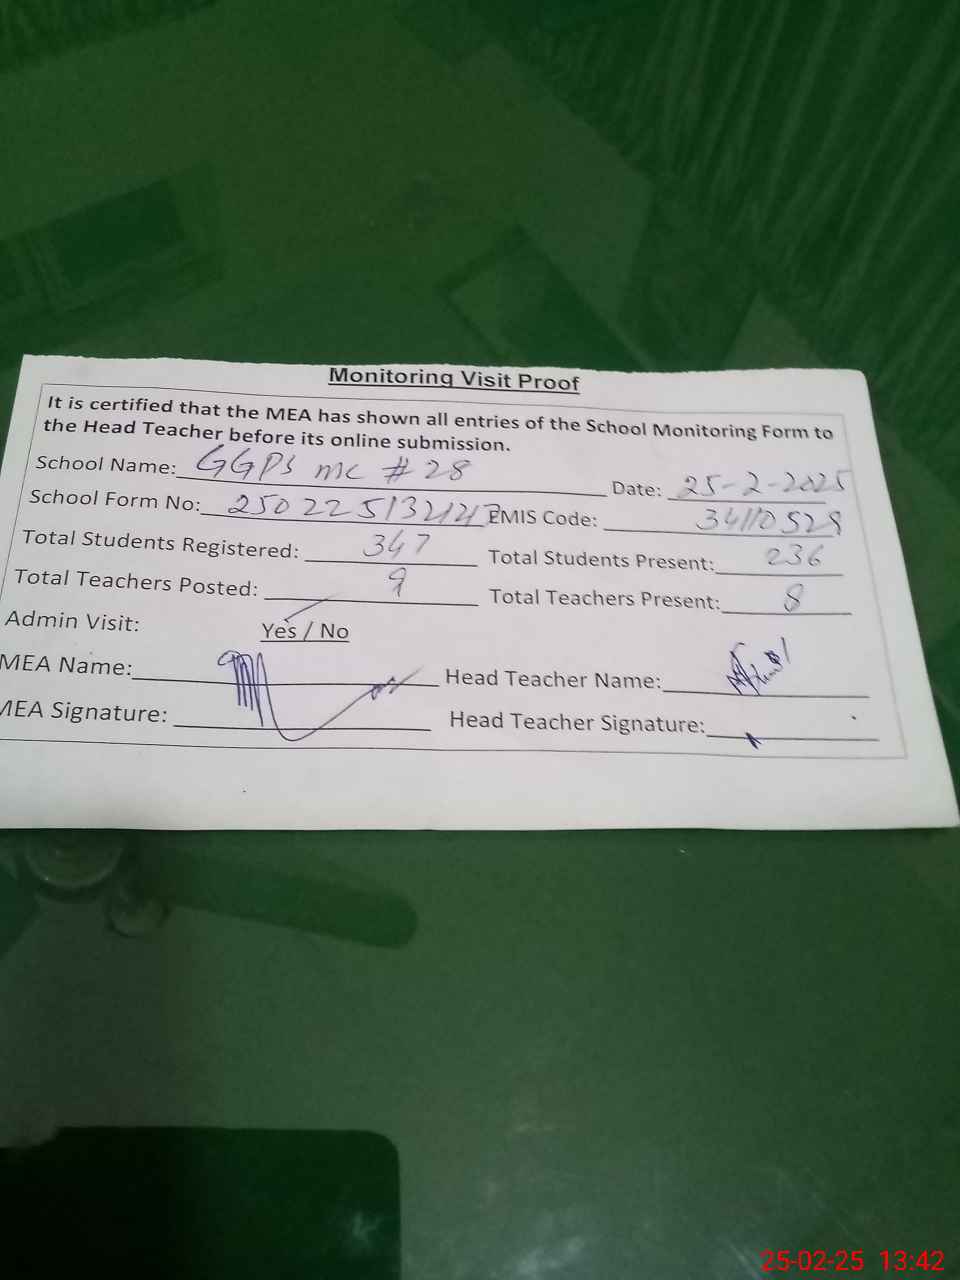 Monitoring Visit Proof
It is certified that the MEA has shown all entries of the School Monitoring Form to
the Head Teacher before its online submission.
School Name: GGPS MC # 28 Date: 25-2-2025
School Form No: EMIS Code: 34110528
Total Students Registered: 347 Total Students Present: 236
Total Teachers Posted: 9 Total Teachers Present: 8
Admin Visit: Yes / No
MEA Name: Head Teacher Name:
MEA Signature: Head Teacher Signature:
25-02-25 13:42